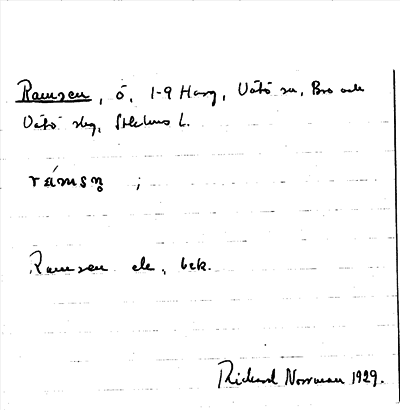 Ramsen, ö, 1-9 Harg, Vätö sn, Bro och
Vätö skg, Sthlms l.
rámsn̥ ;
Ramsen ek, bek.
Rickard Norrman 1929.